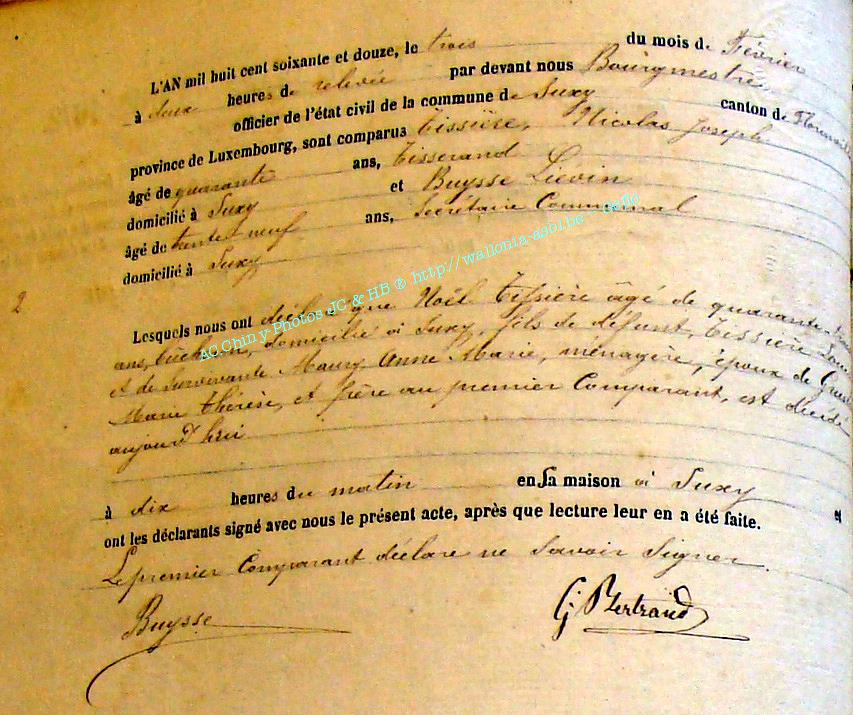 L'AN mil huit cent soixante et douze, le trois du mois de Février
à deux heures de relevée par devant nous Bourgmestre
officier de l'état civil de la commune de Suxy canton de Florenville
province de Luxembourg, sont comparus Tissière, Nicolas Joseph
âgé de quarante ans, tisserand
domicilié à Suxy et Buysse Liévin
âgé de trente neuf ans, Secrétaire Communal
domicilié à Suxy
2
Lesquels nous ont déclaré que Noël Tissière âgé de quarante
ans, bûcheron, domicilié à Suxy, fils de défunt, Tissière
et de survivante Maury Anne Marie, ménagère, époux de
Marie Thérèse, et frère au premier Comparant, est décédé
aujourd'hui
à dix heures du matin en sa maison à Suxy et
ont les déclarants signé avec nous le présent acte, après que lecture leur en a été faite.
Le premier Comparant déclare ne Savoir Signer.
Buysse G Bertrand
AC Chiny-Photos JC & HB ® http://wallonia-asbl.be -